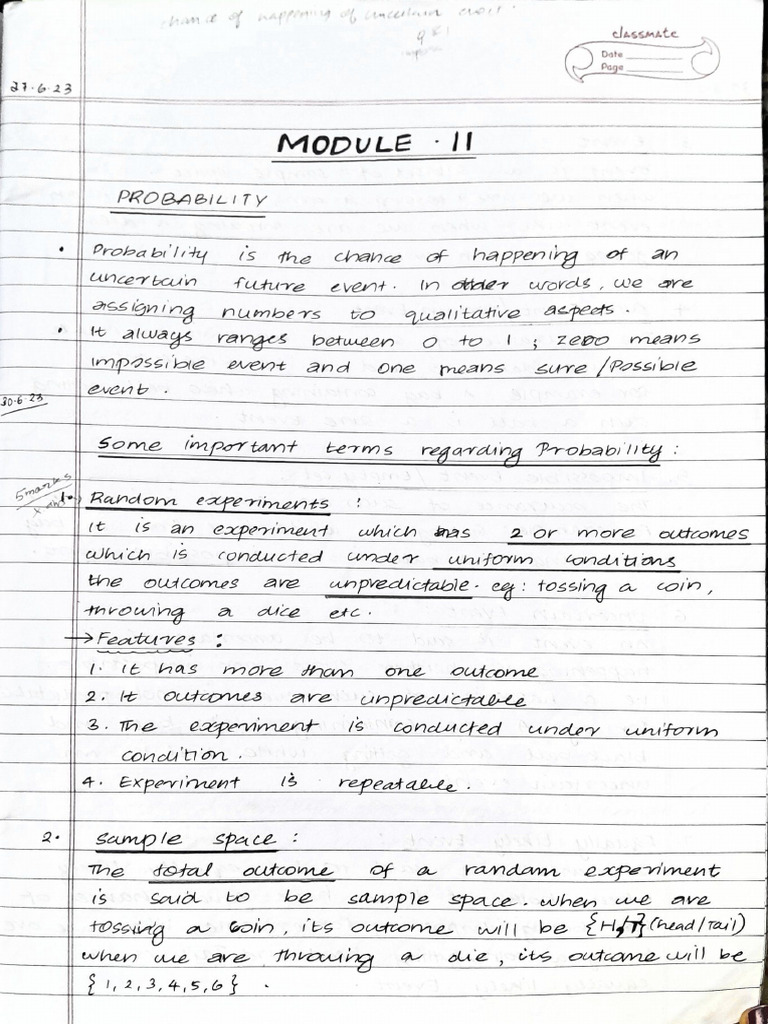 chance of happening of uncertain
classmate
Date
Page
27.6.23
MODULE - II
PROBABILITY
• Probability is the chance of happening of an
uncertain future event. In other words, we are
assigning numbers to qualitative aspects.
• It always ranges between 0 to 1 ; zero means
impossible event and one means sure /Possible
event.
30.6.23
Some important terms regarding Probability :
5 marks
1. Random experiments :
It is an experiment which has 2 or more outcomes
which is conducted under uniform conditions
the outcomes are unpredictable. eg: tossing a coin,
throwing a dice etc.
→ Features :
1. It has more than one outcome
2. It outcomes are unpredictable
3. The experiment is conducted under uniform
condition.
4. Experiment is repeatable.
2. Sample space :
The total outcome of a random experiment
is said to be sample space. when we are
tossing a coin, its outcome will be {H,T} (head/Tail)
when we are throwing a die, its outcome will be
{1,2,3,4,5,6} .